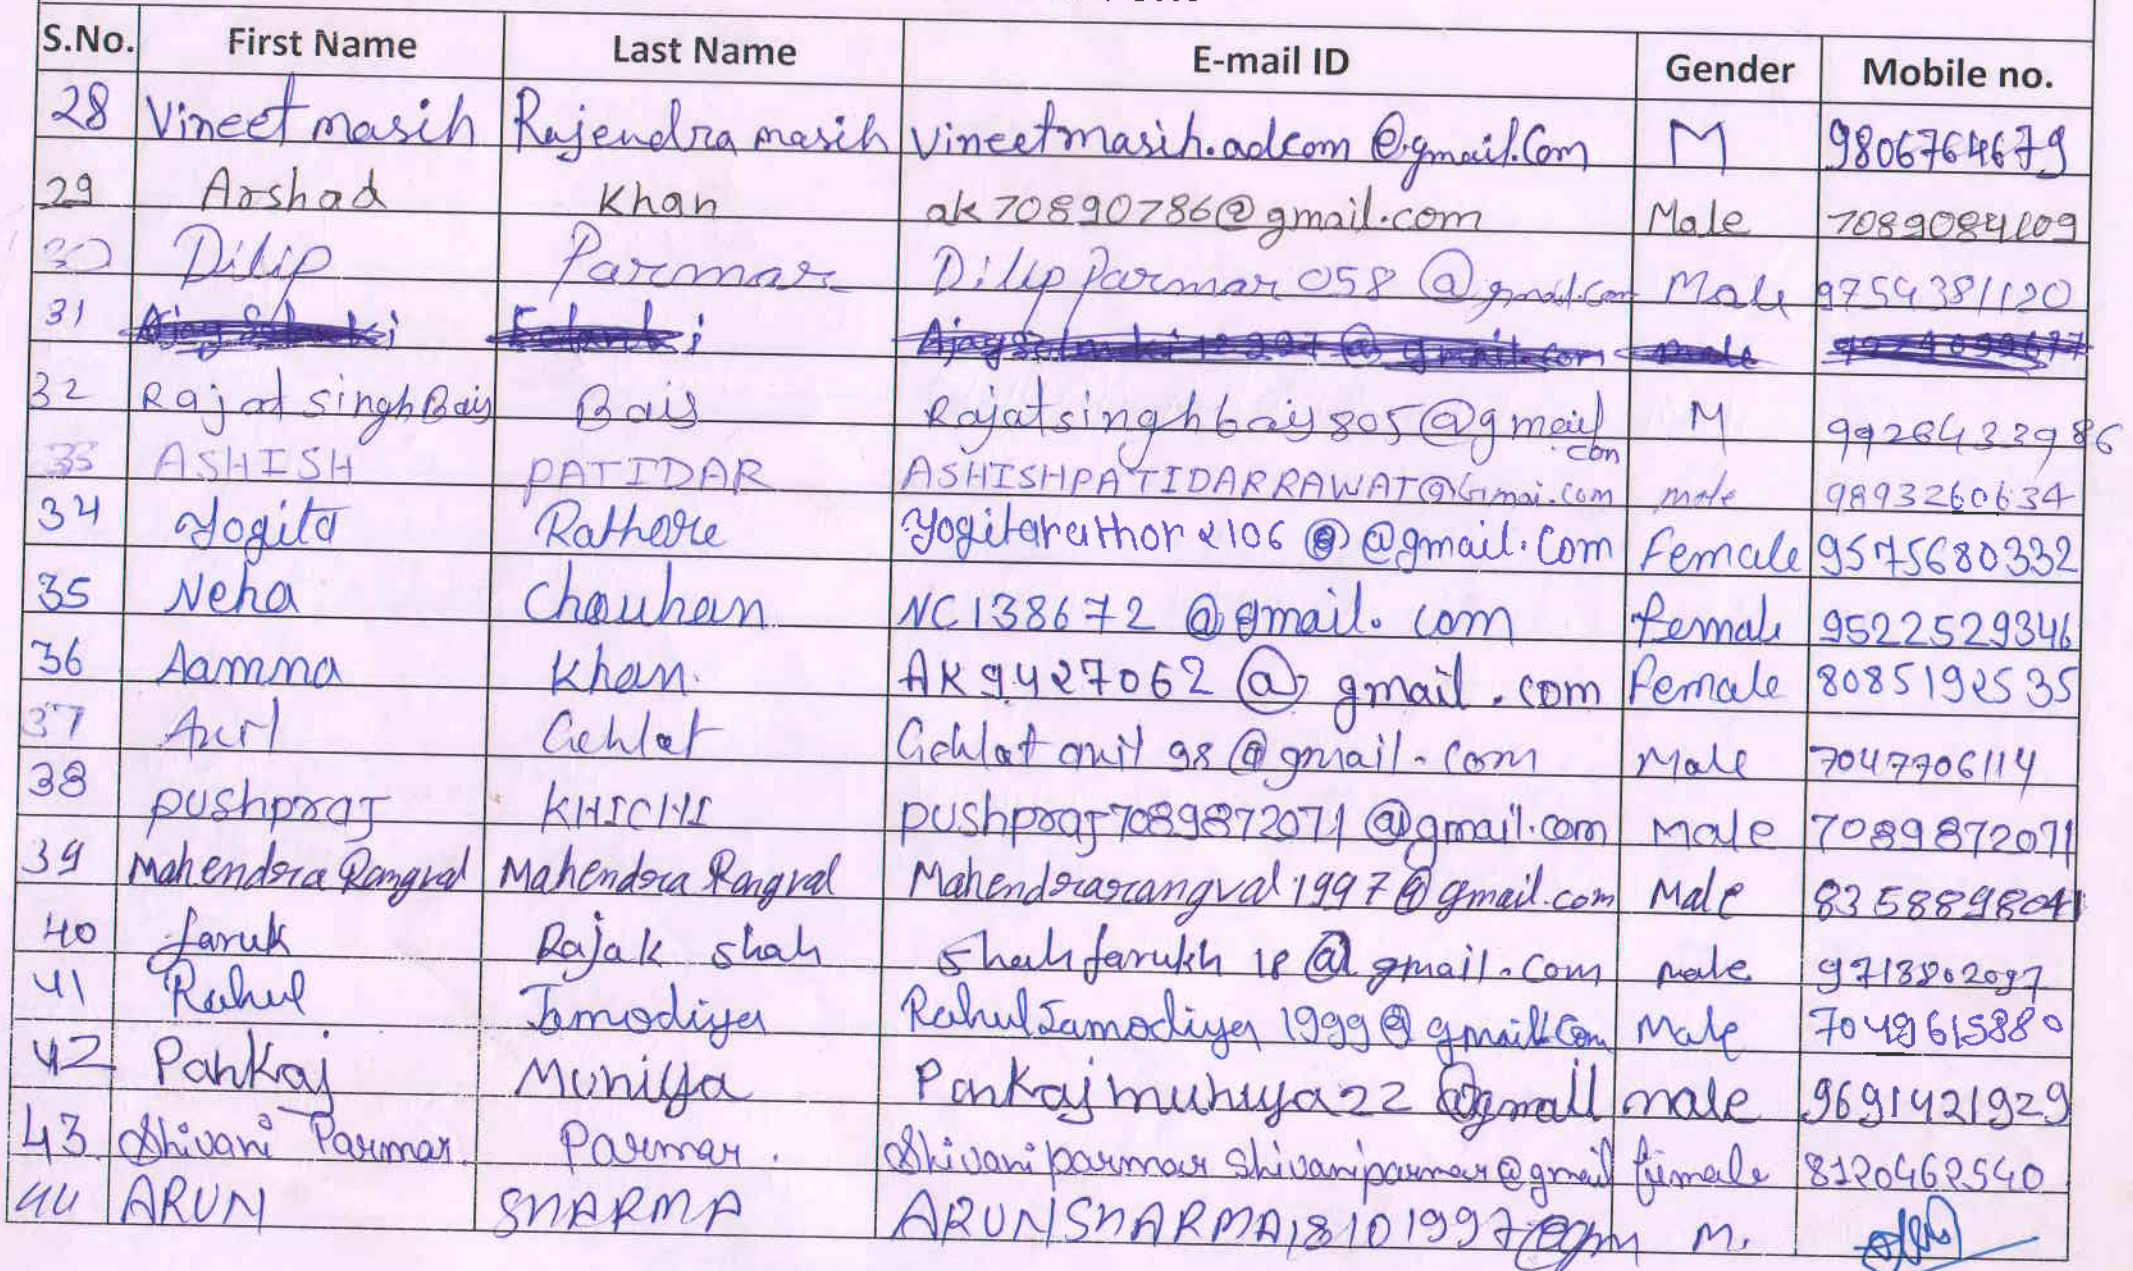 S.No. First Name Last Name E-mail ID Gender Mobile no.
28 Vineet masih Rajendra masih vineetmasih.adcom@gmail.com M 9806764679
29 Arshad Khan ak70890786@gmail.com Male 7089084109
30 Dilip Parmar Dilipparmar058@gmail.com Male 9754381120
31
32 Rajat singh Bais Bais Rajatsinghbais805@gmail.con M 9926433986
33 ASHISH PATIDAR ASHISHPATIDARRAWAT@Gmai.com male 9893260634
34 Yogita Rathore Yogitarathor2106 @ @gmail.com Female 9575680332
35 Neha Chauhan NC138672@gmail.com female 9522529346
36 Aamna Khan. AK9427062@gmail.com Female 8085192535
37 Anil Gehlot Gehlot anil 98@gmail.com Male 7047706114
38 pushpraj KHICHI pushpraj7089872071@gmail.com Male 7089872071
39 Mahendra Rangval Mahendra Rangval Mahendrarangval1997@gmail.com Male 8358898041
40 faruk Rajak shah Shahfarukh18@gmail.com male 9713802097
41 Rahul Jamodiya RahulJamodiya1999@gmail.com Male 7049615880
42 Pankaj Muniya Pankajmuniya22@gmall male 9691421929
43. Shivani Parmar. Parmar. Shivaniparmar Shivaniparmar@gmail female 8120462540
44 ARUN SHARMA ARUNSHARMA18101997@gm M.